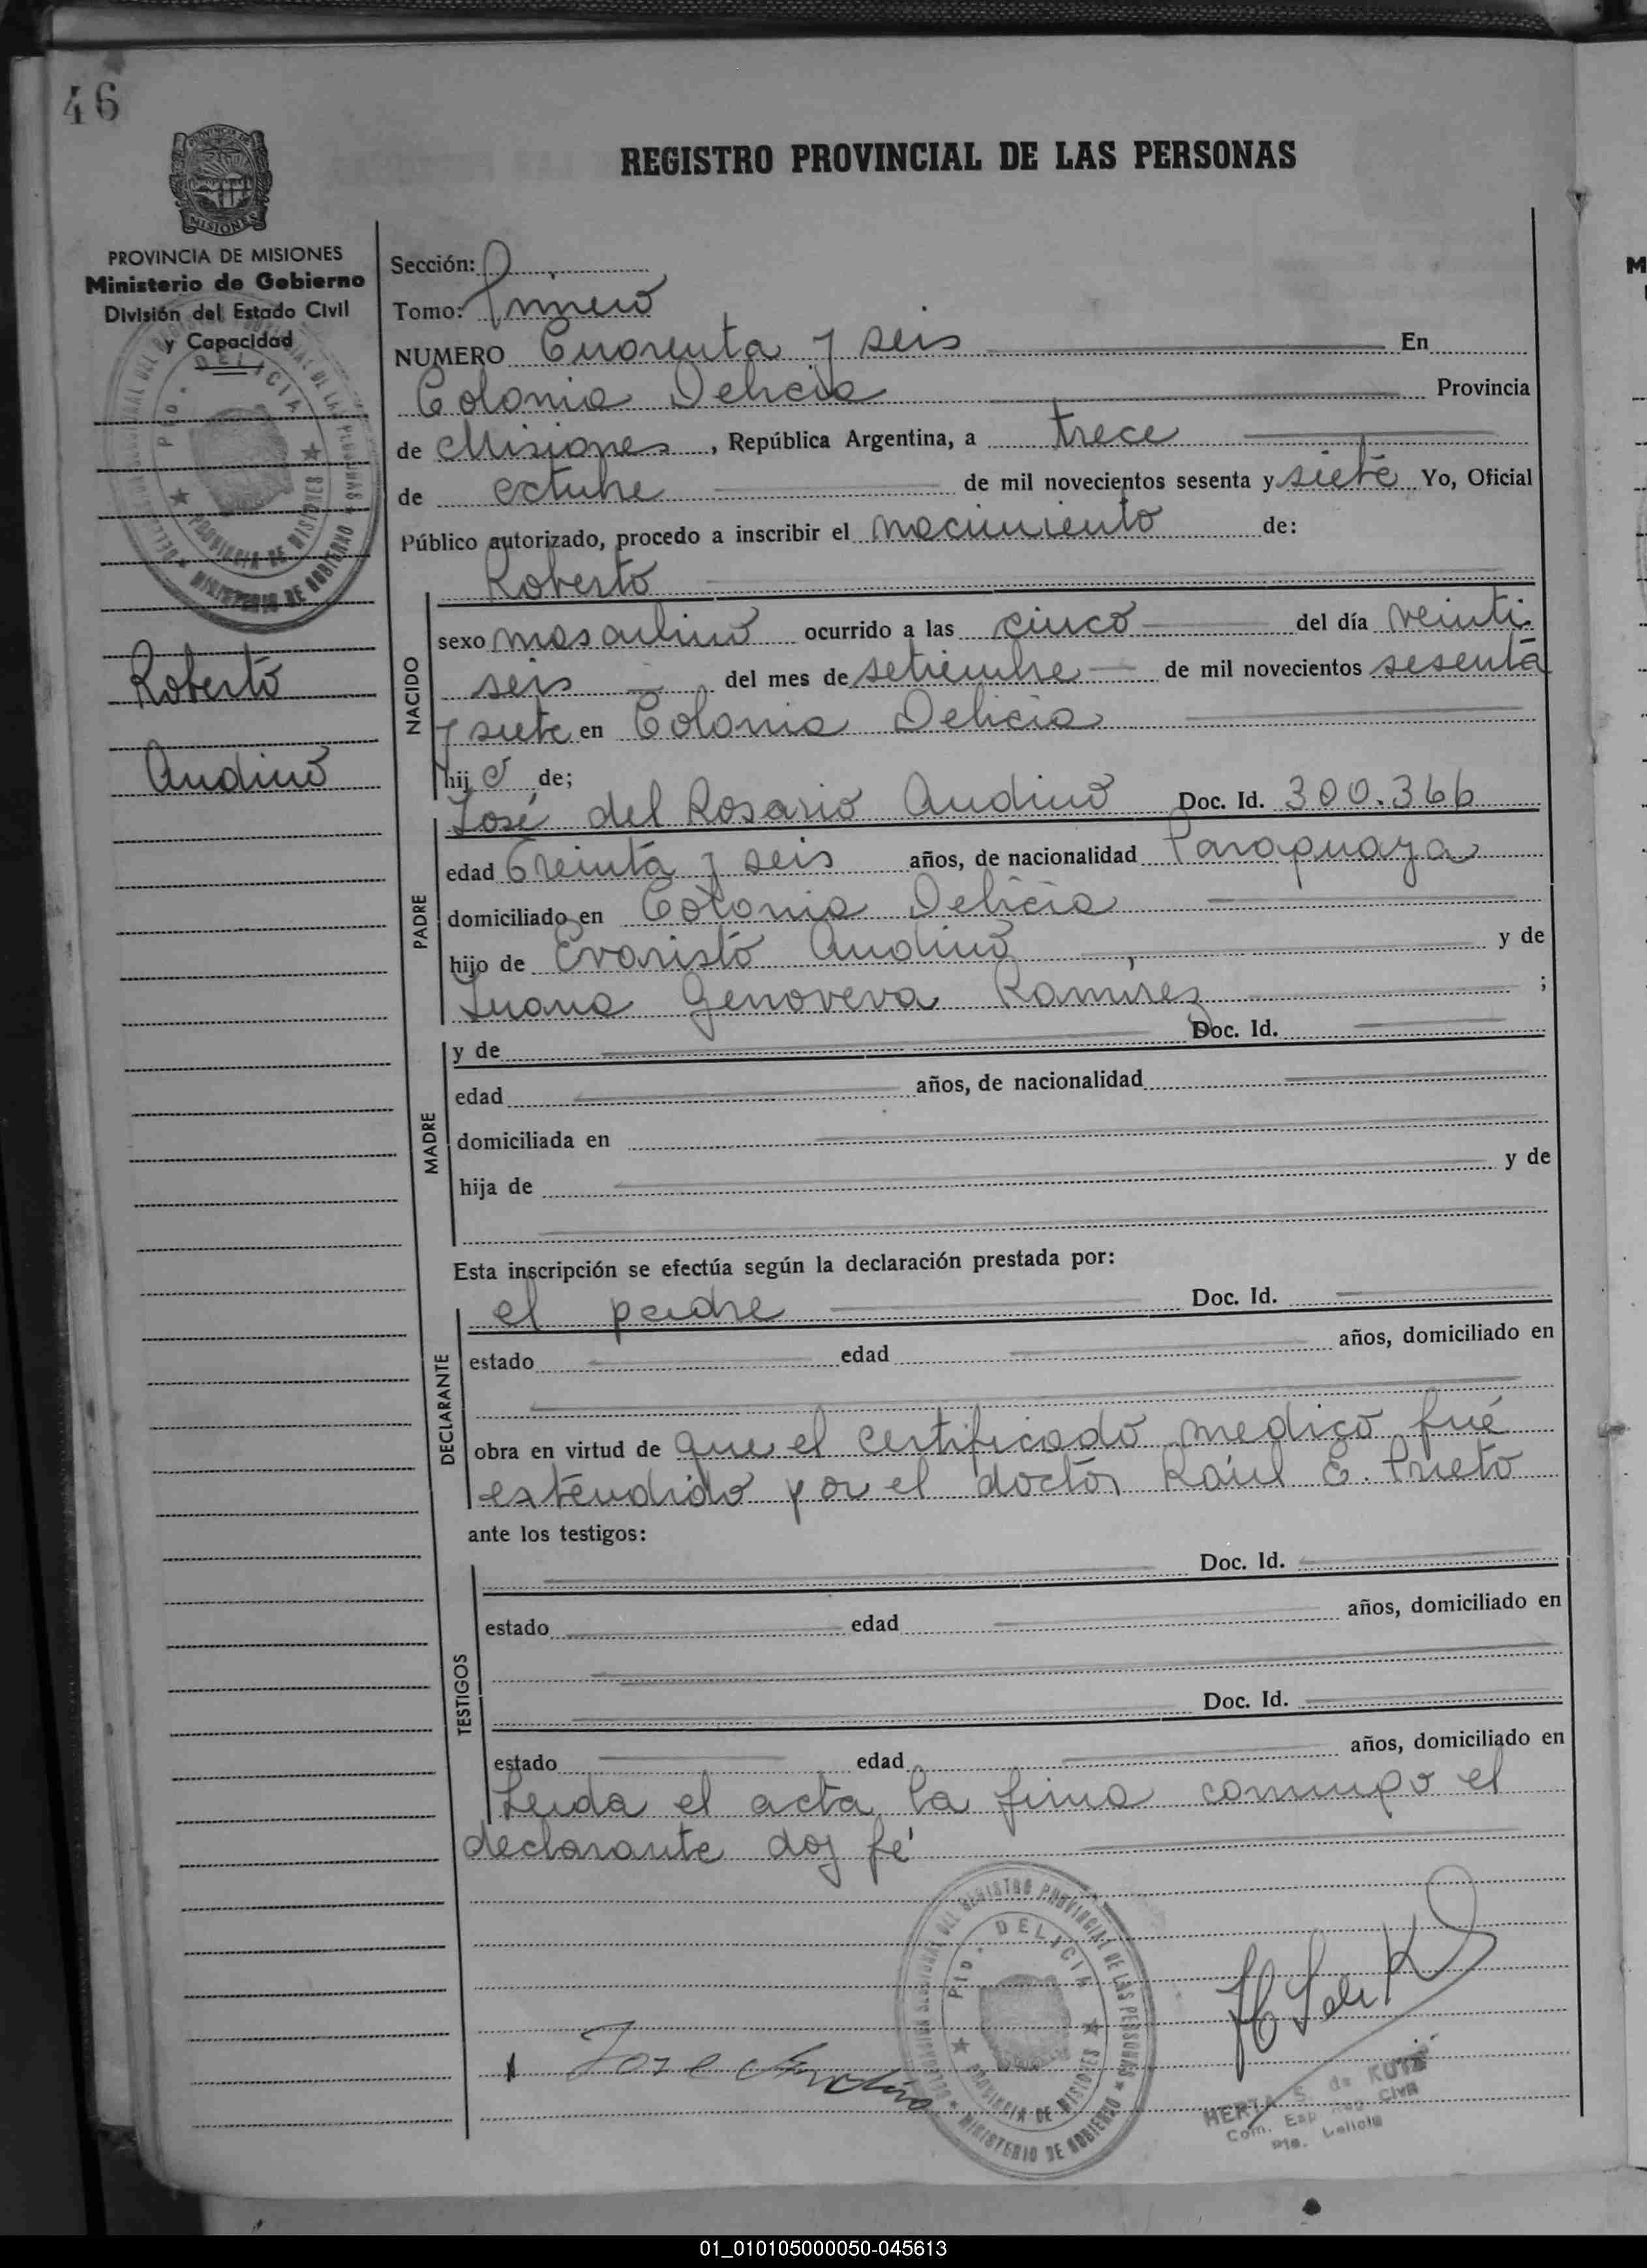 46
PROVINCIA DE
MISIONES
REGISTRO PROVINCIAL DE LAS PERSONAS
PROVINCIA DE MISIONES
Ministerio de Gobierno
División del Estado Civil
y Capacidad
Sección:
Tomo: Primero
NUMERO Cuarenta y seis En
Colonia Delicia Provincia
de Misiones, República Argentina, a trece
de octubre de mil novecientos sesenta y siete Yo, Oficial
Público autorizado, procedo a inscribir el nacimiento de:
Roberto
NACIDO
sexo masculino ocurrido a las cinco del día veinti
seis del mes de setiembre de mil novecientos sesenta
y siete en Colonia Delicia
hijo de;
Roberto
Andino
PADRE
José del Rosario Andino Doc. Id. 300.366
edad Treinta y seis años, de nacionalidad Paraguaya
domiciliado en Colonia Delicia
hijo de Evaristo Andino y de
Juana Genoveva Ramirez ;
MADRE
y de Doc. Id.
edad años, de nacionalidad
domiciliada en
hija de y de
Esta inscripción se efectúa según la declaración prestada por:
DECLARANTE
el padre Doc. Id.
estado edad años, domiciliado en
obra en virtud de que el certificado medico fué
estendido por el doctor Raúl E. Prieto
ante los testigos:
TESTIGOS
Doc. Id.
estado edad años, domiciliado en
Doc. Id.
estado edad años, domiciliado en
Leida el acta la firma conmigo el
declarante doy fé
DELEGACION SECCIONAL DEL REGISTRO PROVINCIAL DE LAS PERSONAS
MINISTERIO DE GOBIERNO
PTO. DELICIA
PROVINCIA DE MISIONES
Jose Andino
HERTA S. de
01_010105000050-045613